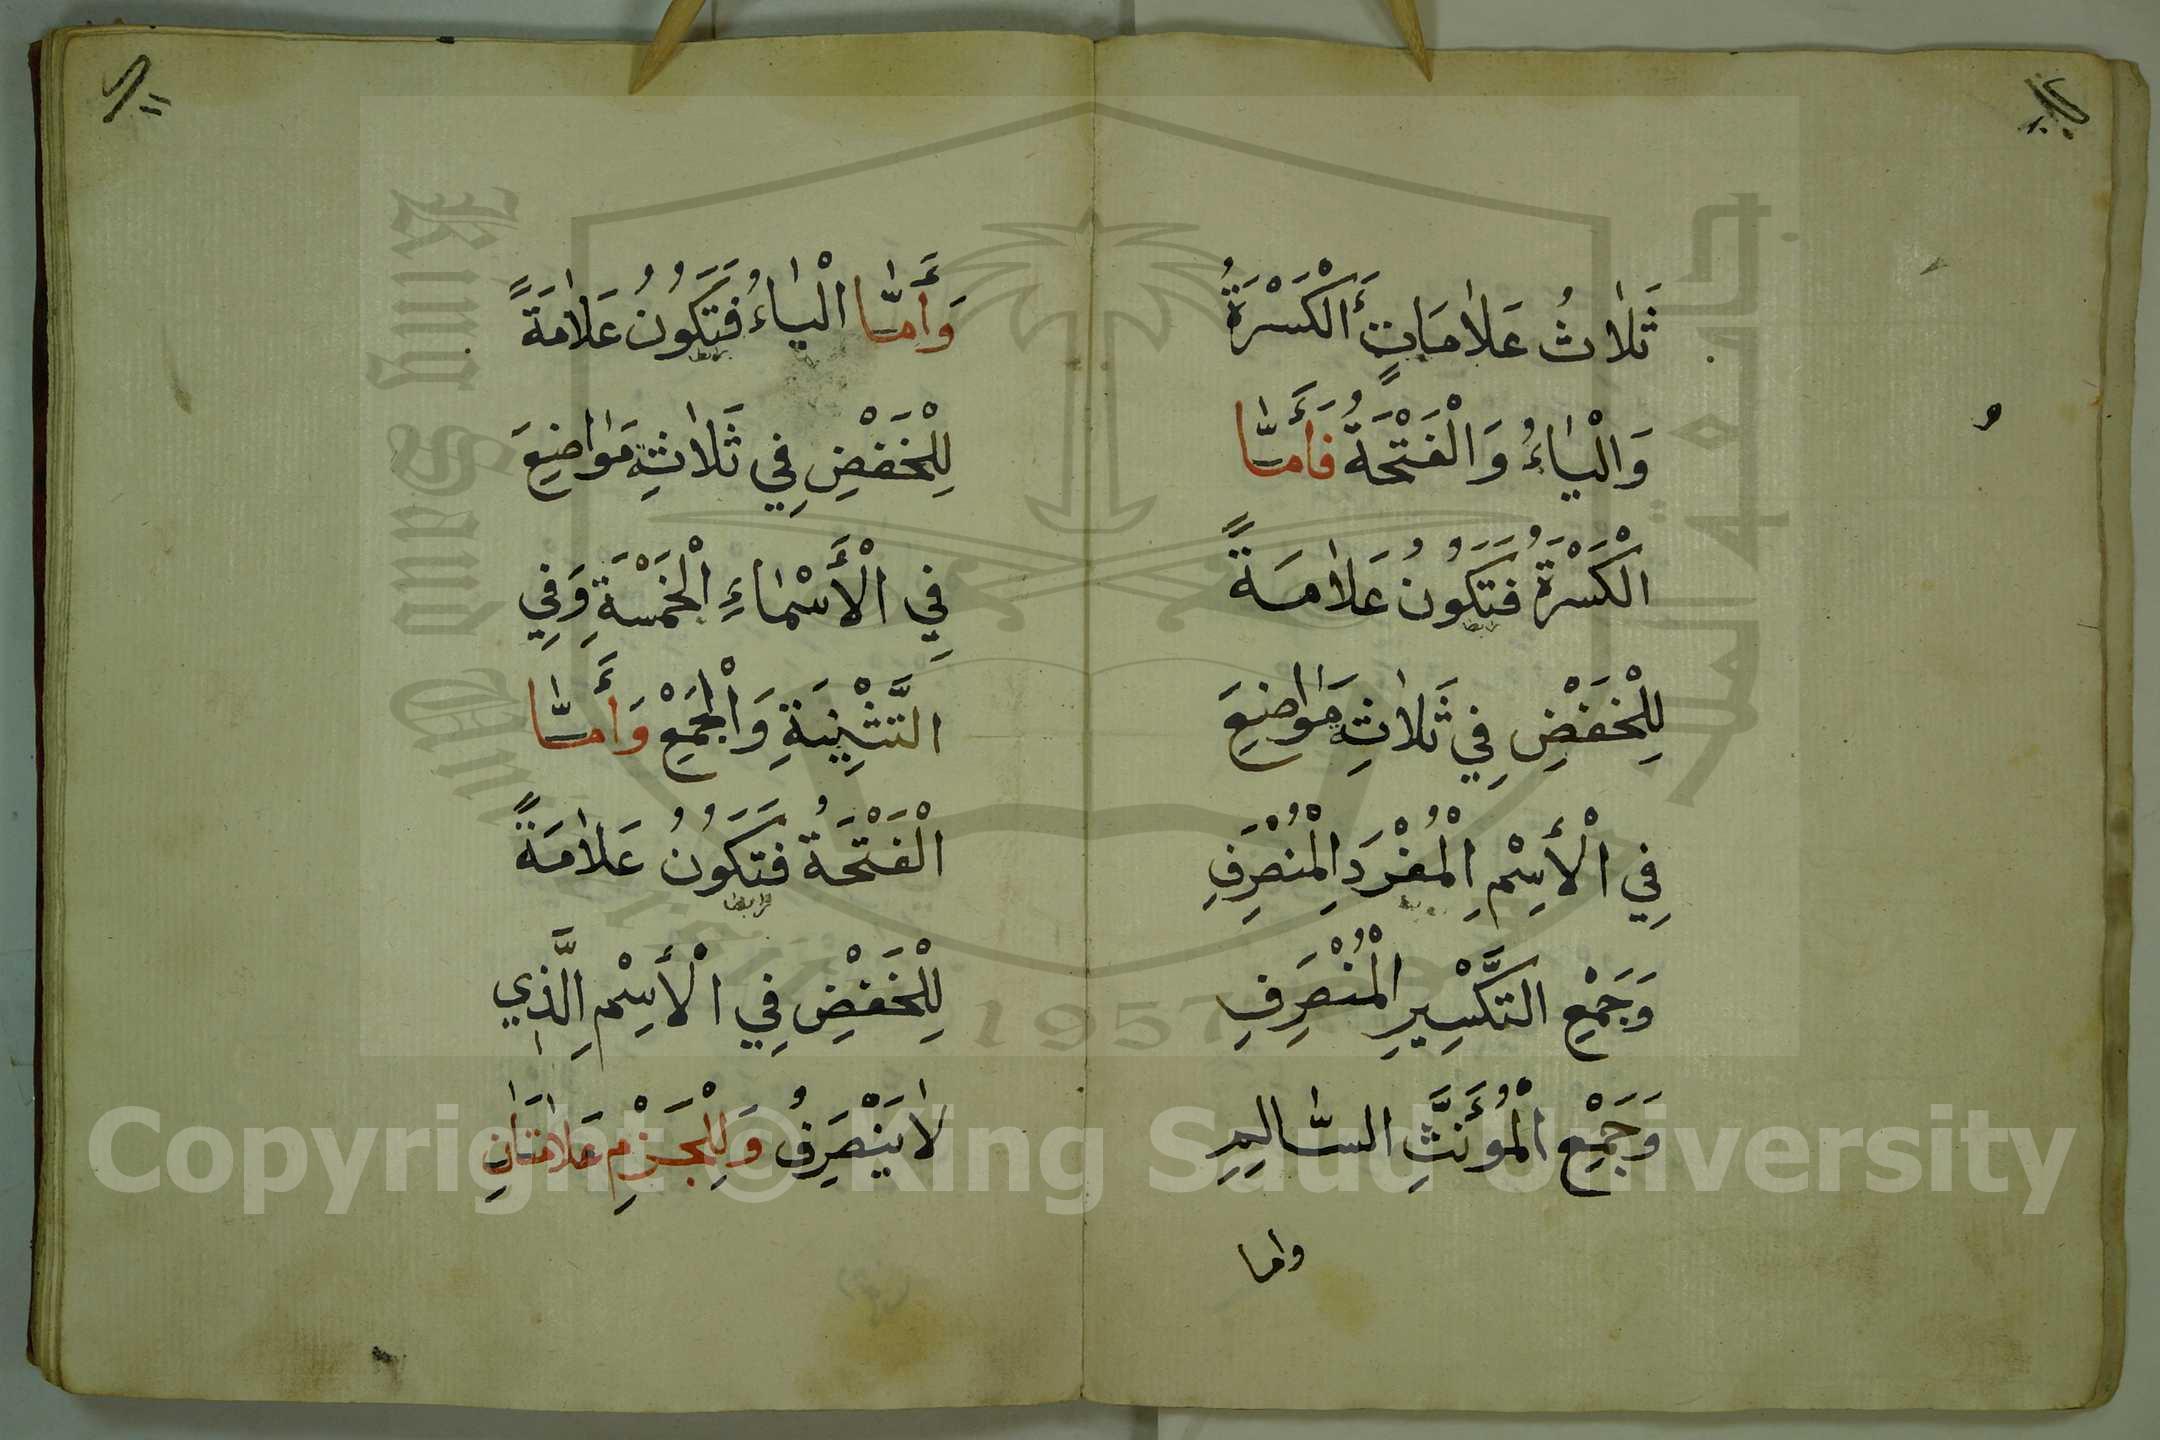 ثَلاٰثُ عَلاٰمَاتٍ أَلْكَسْرَةُ
وَالْيٰاءُ وَالْفَتْحَةُ فَأَمّٰا
الْكَسْرَةُ فَتَكُونُ عَلاٰمَةً
لِلْخَفْضِ فِي ثَلاٰثَةِ مَوٰاضِعَ
فِي الْأَسِْمِ الْمُفْرَدِ الْمُنْصَرِفِ
وَجَمْعِ التَّكْسِيرِ الْمُنْصَرِفِ
وَجَمْعِ الْمُؤَنَّثِ السّٰالِمِ
واما
وَأَمّٰا الْيٰاءُ فَتَكُونُ عَلاٰمَةً
لِلْخَفْضِ فِي ثَلاٰثَةِ مَوٰاضِعَ
فِي الْأَسْمٰاءِ الْخَمْسَةِ وَفِي
التَّثْنِيَةِ وَالْجَمْعِ وَأَمّٰا
الْفَتْحَةُ فَتَكُونُ عَلاٰمَةً
لِلْخَفْضِ فِي الْأَسِْمِ الَّذِي
لاٰ يَنْصَرِفُ وَلِلْجَزْمِ عَلاٰمَتٰانِ
جامعة الملك
King Saud University
1957
Copyright © King Saud University